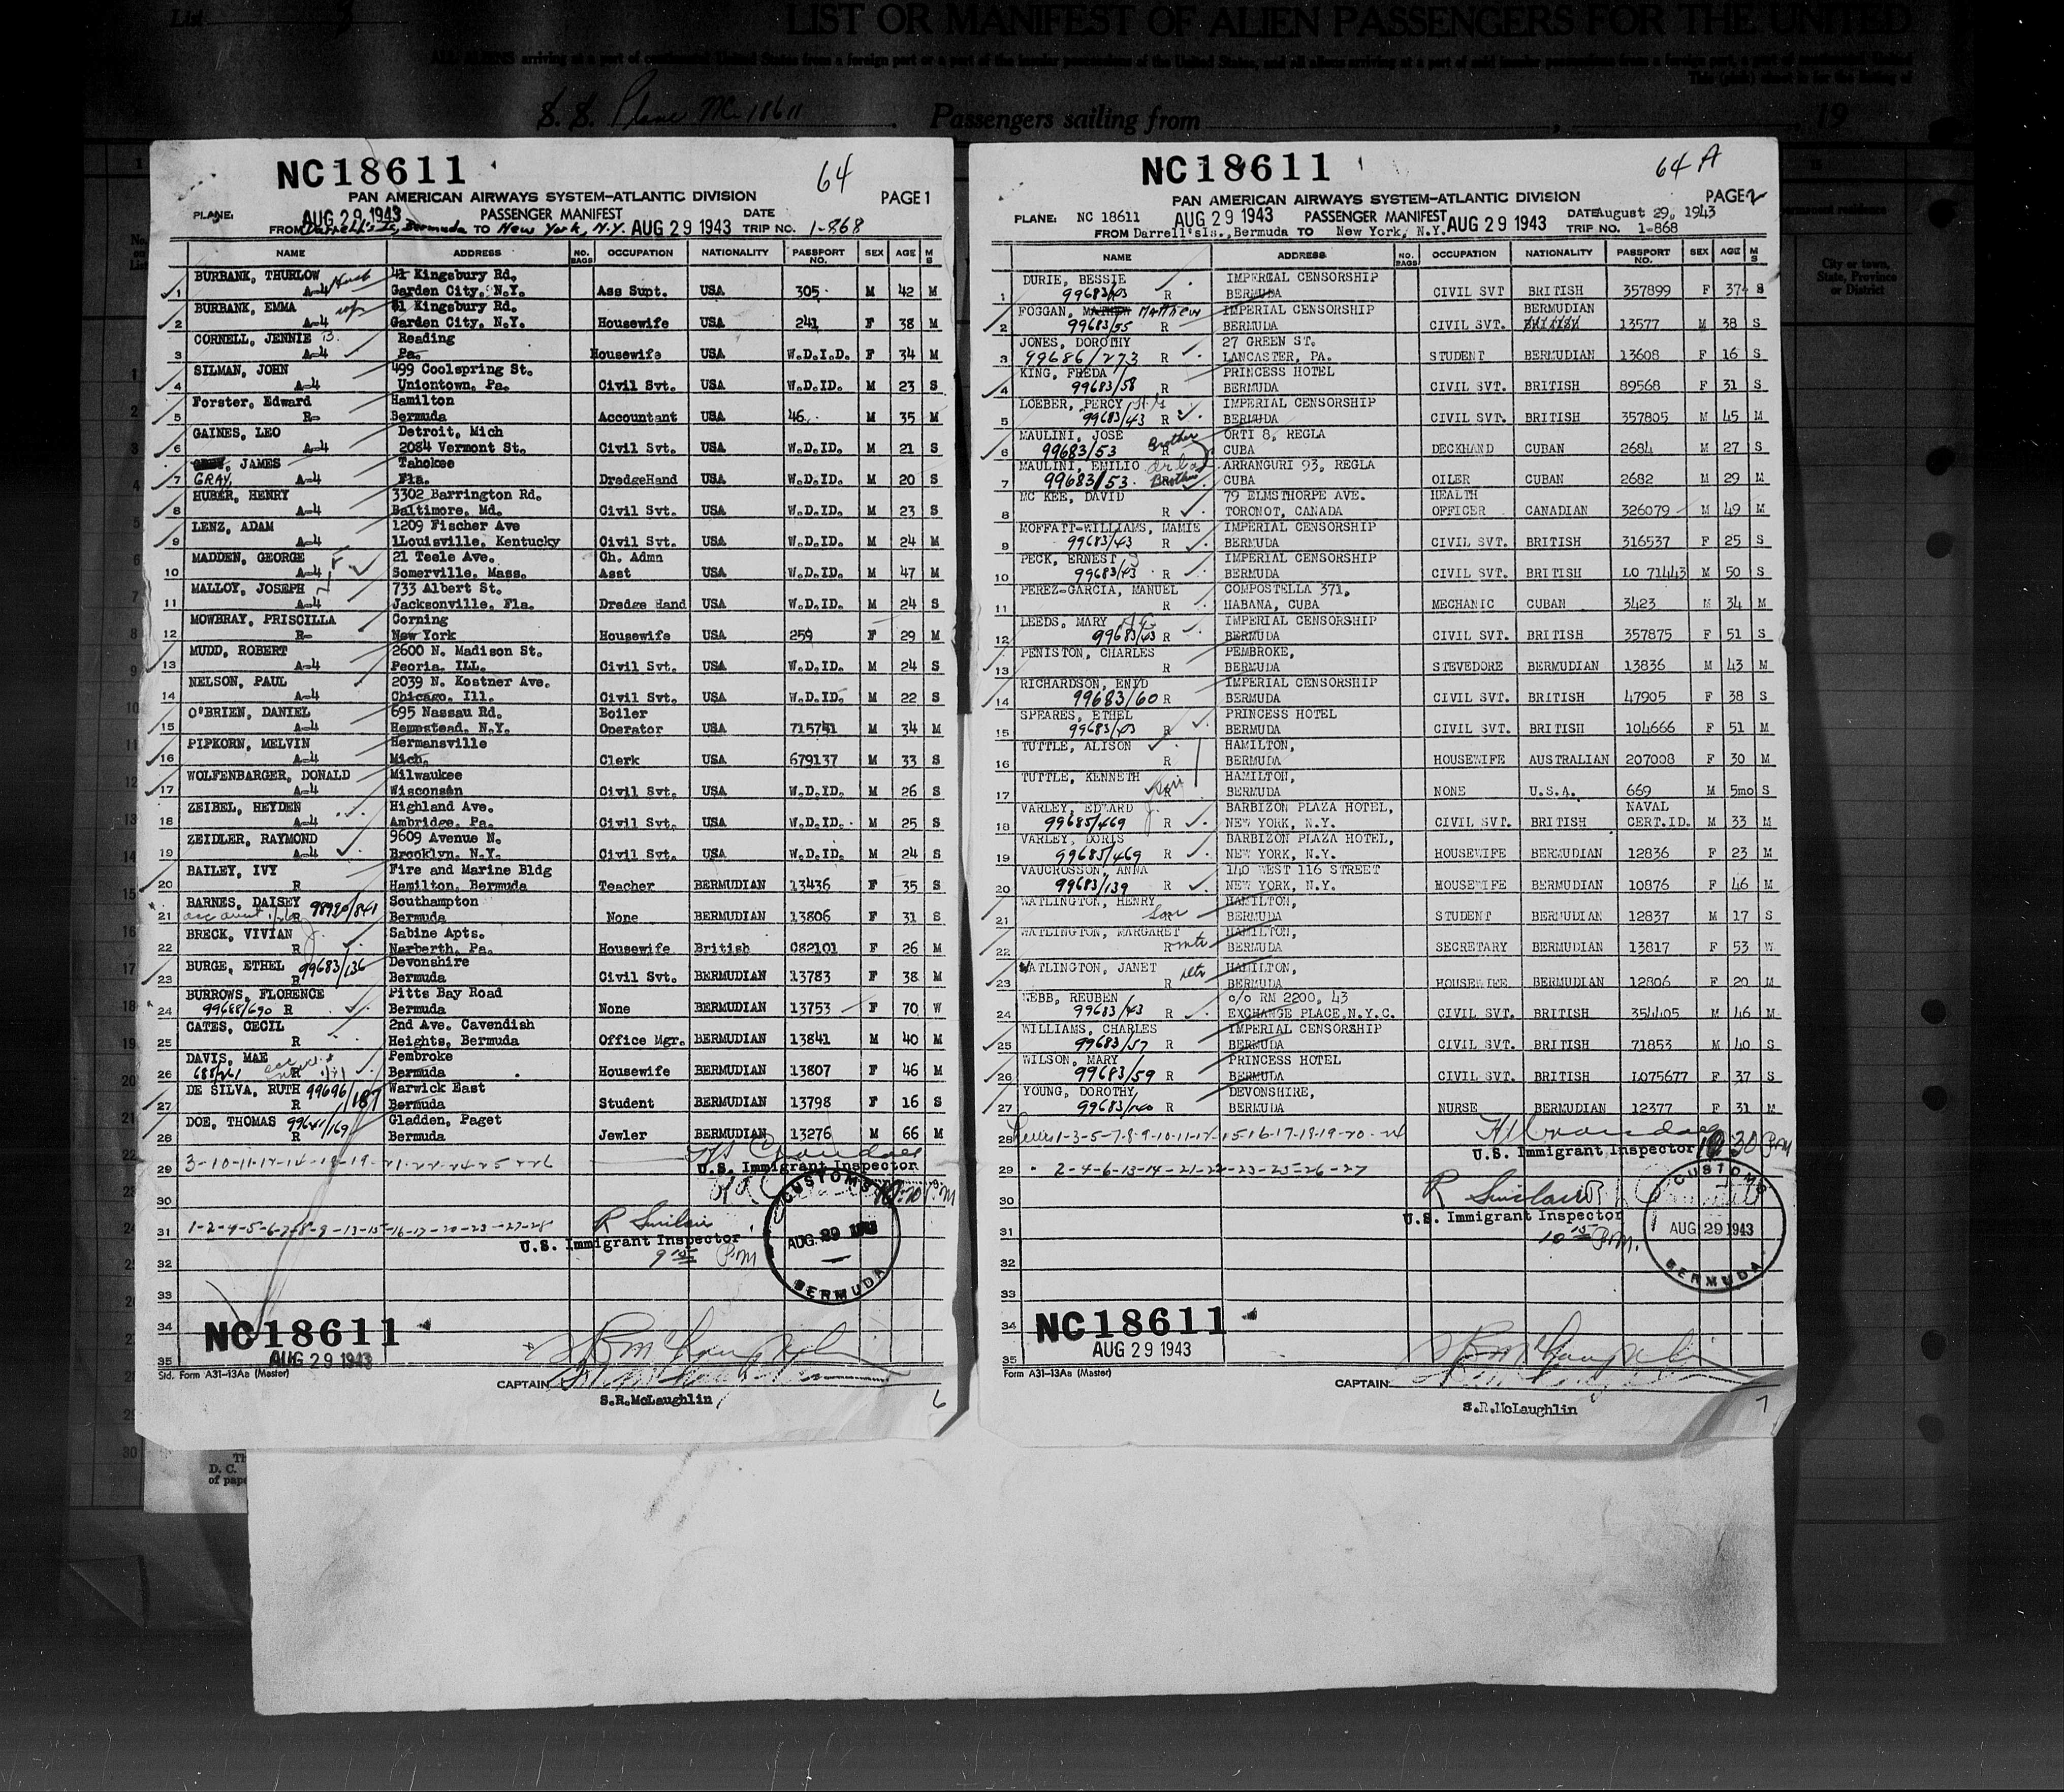 List 3
LIST OR MANIFEST OF ALIEN PASSENGERS FOR THE UNITED
ALL ALIENS arriving at a port of continental United States from a foreign port or a port of the insular possessions of the United States, and all aliens arriving at a port of said insular possessions from a foreign port, a port of continental United
This (pink) sheet is for the listing of
S. S. Plane NC 18611 Passengers sailing from , 19
NC18611 64
PAN AMERICAN AIRWAYS SYSTEM–ATLANTIC DIVISION PAGE 1
PLANE: AUG 29 1943 PASSENGER MANIFEST DATE
FROM Darrell's Is, Bermuda TO New York, N.Y. AUG 29 1943 TRIP NO. 1-868
NAME ADDRESS NO. BAGS OCCUPATION NATIONALITY PASSPORT NO. SEX AGE M S
BURBANK, THURLOW Husb 41 Kingsbury Rd.
1 A-4 Garden City, N.Y. Ass Supt. USA 305 M 42 M
BURBANK, EMMA wife 41 Kingsbury Rd.
2 A-4 Garden City, N.Y. Housewife USA 241 F 38 M
CORNELL, JENNIE B. Reading
3 A-4 Pa. Housewife USA W.D.I.D. F 34 M
SILMAN, JOHN 499 Coolspring St.
4 A-4 Uniontown, Pa. Civil Svt. USA W.D.ID. M 23 S
Forster, Edward Hamilton
5 R- Bermuda Accountant USA 46. M 35 M
GAINES, LEO Detroit, Mich
6 A-4 2084 Vermont St. Civil Svt. USA W.D.ID. M 21 S
, JAMES Tahokee
7 GRAY, A-4 Fla. DredgeHand USA W.D.ID. M 20 S
HUBER, HENRY 3302 Barrington Rd.
8 A-4 Baltimore, Md. Civil Svt. USA W.D.ID. M 23 S
LENZ, ADAM 1209 Fischer Ave
9 A-4 lLouisville, Kentucky Civil Svt. USA W.D.ID. M 24 M
MADDEN, GEORGE F 21 Teele Ave. Ch. Admn
10 A-4 Somerville, Mass. Asst USA W.D.ID. M 47 M
MALLOY, JOSEPH 733 Albert St.
11 A-4 Jacksonville, Fla. Dredge Hand USA W.D.ID. M 24 S
MOWBRAY, PRISCILLA Corning
12 R- New York Housewife USA 259 F 29 M
MUDD, ROBERT 2600 N. Madison St.
13 A-4 Peoria, ILL. Civil Svt. USA W.D.ID. M 24 S
NELSON, PAUL 2039 N. Kostner Ave.
14 A-4 Chicago, Ill. Civil Svt. USA W.D.ID. M 22 S
O'BRIEN, DANIEL 695 Nassau Rd. Boiler
15 A-4 Hempstead, N.Y. Operator USA 715741 M 34 M
PIPKORN, MELVIN Hermansville
16 A-4 Mich. Clerk USA 679137 M 33 S
WOLFENBARGER, DONALD Milwaukee
17 A-4 Wisconsin Civil Svt. USA W.D.ID. M 26 S
ZEIBEL, HEYDEN Highland Ave.
18 A-4 Ambridge, Pa. Civil Svt. USA W.D.ID. M 25 S
ZEIDLER, RAYMOND 9609 Avenue N.
19 A-4 Brooklyn, N.Y. Civil Svt. USA W.D.ID. M 24 S
BAILEY, IVY Fire and Marine Bldg
20 R Hamilton, Bermuda Teacher BERMUDIAN 13436 F 35 S
BARNES, DAISEY 98920/841 Southampton
21 R Bermuda None BERMUDIAN 13806 F 31 S
BRECK, VIVIAN J. Sabine Apts.
22 R Narberth, Pa. Housewife British 082101 F 26 M
BURGE, ETHEL 99683/136 Devonshire
23 R Bermuda Civil Svt. BERMUDIAN 13783 F 38 M
BURROWS, FLORENCE Pitts Bay Road
24 99688/690 R Bermuda None BERMUDIAN 13753 F 70 W
CATES, CECIL 2nd Ave. Cavendish
25 R Heights, Bermuda Office Mgr. BERMUDIAN 13841 M 40 M
DAVIS, MAE Pembroke
26 688/261 R Bermuda Housewife BERMUDIAN 13807 F 46 M
DE SILVA, RUTH 99696/187 Warwick East
27 R Bermuda Student BERMUDIAN 13798 F 16 S
DOE, THOMAS 99641/169 Gladden, Paget
28 R Bermuda Jewler BERMUDIAN 13276 M 66 M
29 3-10-11-12-14-18-19-21-22-24-25-26
U.S. Immigrant Inspector
30
31 1-2-4-5-6-7-8-9-13-15-16-17-20-23-27-28 R Sinclair
U.S. Immigrant Inspector
9 15 P.M
CUSTOMS AUG 29 1943 BERMUDA
32
33
34
NC18611
35 AUG 29 1943
Std. Form A31-13Aa (Master)
CAPTAIN S R McLaughlin
S.R.McLaughlin
6
NC18611 64 A
PAN AMERICAN AIRWAYS SYSTEM–ATLANTIC DIVISION PAGE 2
PLANE: NC 18611 AUG 29 1943 PASSENGER MANIFEST AUG 29 1943 DATE August 29, 1943
FROM Darrell'sIs., Bermuda TO New York, N.Y. TRIP NO. 1-868
NAME ADDRESS NO. BAGS OCCUPATION NATIONALITY PASSPORT NO. SEX AGE M S
DURIE, BESSIE IMPERIAL CENSORSHIP
1 99683/43 R BERMUDA CIVIL SVT BRITISH 357899 F 37 S
FOGGAN, Matthew IMPERIAL CENSORSHIP BERMUDIAN
2 99683/55 R BERMUDA CIVIL SVT. BRITISH 13577 M 38 S
JONES, DOROTHY 27 GREEN ST.
3 99686/273 R LANCASTER, PA. STUDENT BERMUDIAN 13608 F 16 S
KING, FREDA PRINCESS HOTEL
4 99683/58 R BERMUDA CIVIL SVT. BRITISH 89568 F 31 S
LOEBER, PERCY IMPERIAL CENSORSHIP
5 99683/43 R BERMUDA CIVIL SVT. BRITISH 357805 M 45 M
MAULINI, JOSE Brother ORTI 8, REGLA
6 99683/53 R CUBA DECKHAND CUBAN 2684 M 27 S
MAULINI, EMILIO ARRANGURI 93, REGLA
7 99683/53. Brother CUBA OILER CUBAN 2682 M 29 M
MC KEE, DAVID 79 ELMSTHORPE AVE. HEALTH
8 R TORONOT, CANADA OFFICER CANADIAN 326079 M 49 M
MOFFATT-WILLIAMS, MAMIE IMPERIAL CENSORSHIP
9 99683/43 R BERMUDA CIVIL SVT. BRITISH 316537 F 25 S
PECK, ERNEST S IMPERIAL CENSORSHIP
10 99683/43 R BERMUDA CIVIL SVT. BRITISH LO 71443 M 50 S
PEREZ-GARCIA, MANUEL COMPOSTELLA 371,
11 R HABANA, CUBA MECHANIC CUBAN 3423 M 34 M
LEEDS, MARY IMPERIAL CENSORSHIP
12 99683/43 R BERMUDA CIVIL SVT. BRITISH 357875 F 51 S
PENISTON, CHARLES PEMBROKE,
13 R BERMUDA STEVEDORE BERMUDIAN 13836 M 43 M
RICHARDSON, ENID IMPERIAL CENSORSHIP
14 99683/60 R BERMUDA CIVIL SVT. BRITISH 47905 F 38 S
SPEARES, ETHEL PRINCESS HOTEL
15 99683/43 R BERMUDA CIVIL SVT. BRITISH 104666 F 51 M
TUTTLE, ALISON HAMILTON,
16 R BERMUDA HOUSEWIFE AUSTRALIAN 207008 F 30 M
TUTTLE, KENNETH HAMILTON,
17 R BERMUDA NONE U.S.A. 669 M 5mo S
VARLEY, EDWARD J. BARBIZON PLAZA HOTEL, NAVAL
18 99685/469 R NEW YORK, N.Y. CIVIL SVT. BRITISH CERT.ID. M 33 M
VARLEY, DORIS BARBIZON PLAZA HOTEL,
19 99685/469 R NEW YORK, N.Y. HOUSEWIFE BERMUDIAN 12836 F 23 M
VAUCROSSON, ANNA 140 WEST 116 STREET
20 99683/139 R NEW YORK, N.Y. HOUSEWIFE BERMUDIAN 10876 F 46 M
WATLINGTON, HENRY HAMILTON,
21 Son BERMUDA STUDENT BERMUDIAN 12837 M 17 S
WATLINGTON, MARGARET HAMILTON,
22 R BERMUDA SECRETARY BERMUDIAN 13817 F 53 W
WATLINGTON, JANET HAMILTON,
23 R BERMUDA HOUSEWIFE BERMUDIAN 12806 F 20 M
WEBB, REUBEN c/o RM 2200, 43
24 99683/43 R EXCHANGE PLACE,N.Y.C. CIVIL SVT. BRITISH 354405 M 46 M
WILLIAMS, CHARLES IMPERIAL CENSORSHIP
25 99683/57 R BERMUDA CIVIL SVT. BRITISH 71853 M 40 S
WILSON, MARY PRINCESS HOTEL
26 99683/59 R BERMUDA CIVIL SVT. BRITISH LO75677 F 37 S
YOUNG, DOROTHY DEVONSHIRE,
27 99683/140 R BERMUDA NURSE BERMUDIAN 12377 F 31 M
28 1-3-5-7-8-9-10-11-12-15-16-17-18-19-20-24
U.S. Immigrant Inspector 10 30 P.M
29 2-4-6-13-14-21-22-23-25-26-27
30 R Sinclair
U.S. Immigrant Inspector
31 10 15 P.M.
CUSTOMS AUG 29 1943 BERMUDA
32
33
34 NC18611
35 AUG 29 1943
Form A31-13Aa (Master)
CAPTAIN S R McLaughlin
S.R.McLaughlin
7
permanent residence
City or town, State, Province or District
D. C.
of pape